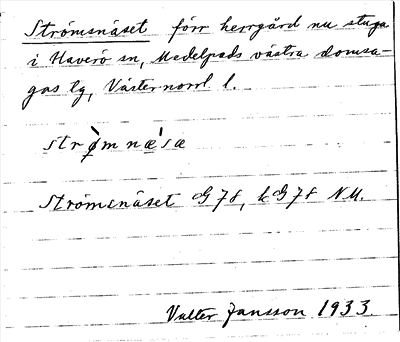 Strömsnäset förr herrgård nu stuga
i Haverö sn, Medelpads västra domsa-
gas tg, Västernorrl l.
strø̀mnæ´sæ
Strömsnäset G78, kG78 NM.
Valter Jansson 1933.